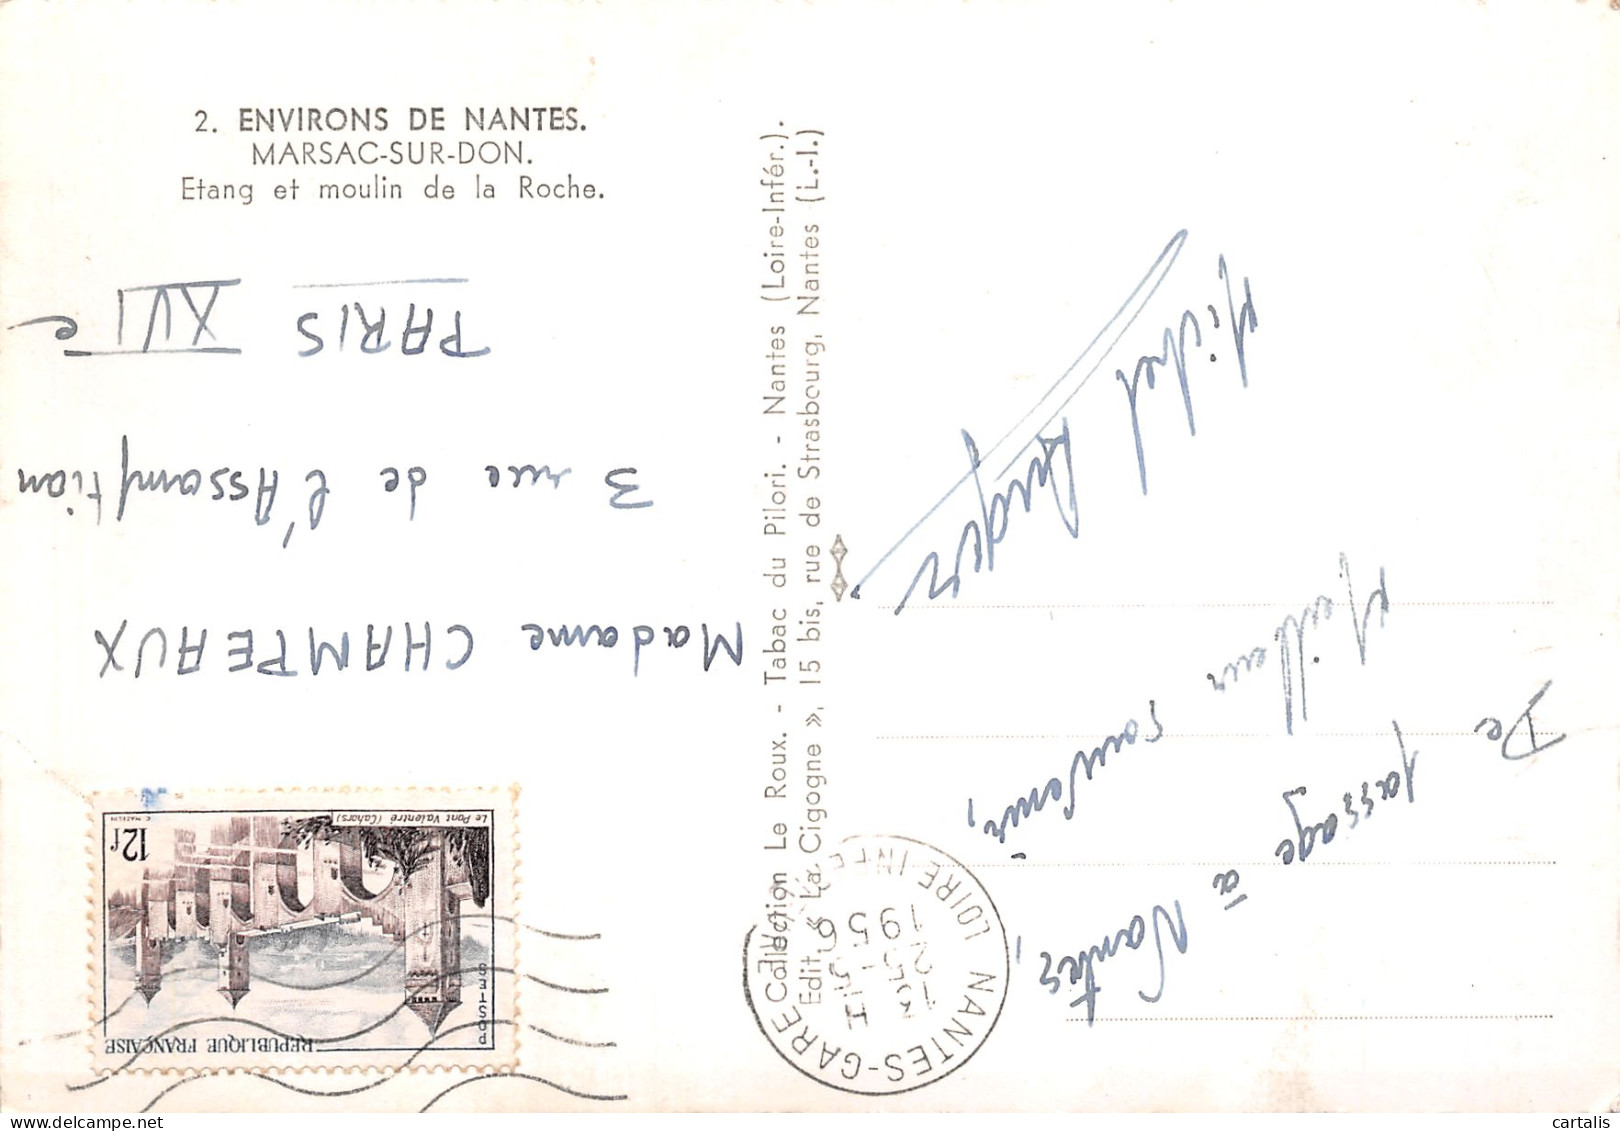 2. ENVIRONS DE NANTES.
MARSAC-SUR-DON.
Etang et moulin de la Roche.
Collection Le Roux. - Tabac du Pilori. - Nantes (Loire-Infér.).
Edit. « La Cigogne », 15 bis, rue de Strasbourg, Nantes (L.-I.)
De passage à Nantes,
Meilleur souvenir,
Michel Auger
Madame CHAMPEAUX
3 rue de l'Assomption
PARIS XVIe
REPUBLIQUE FRANÇAISE
POSTES
12f
Le Pont Valentré (Cahors)
C. MAZELIN
NANTES-GARE
LOIRE INFRE
cartalis